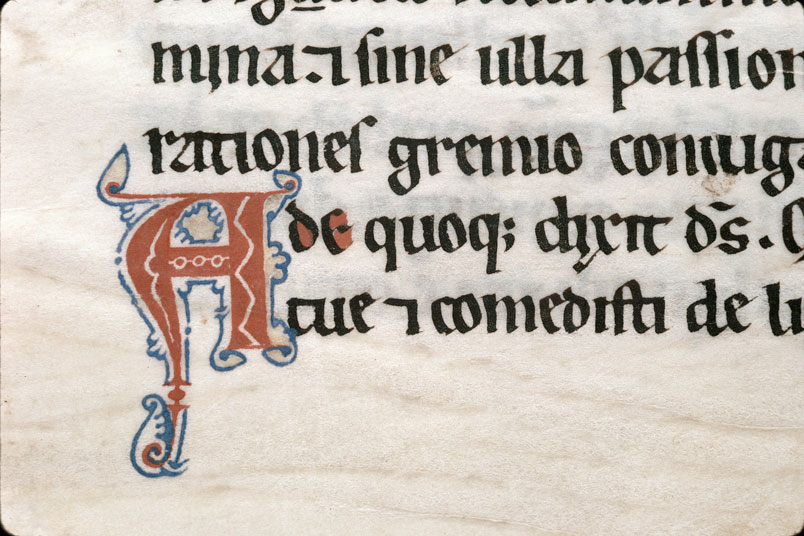 mina. ⁊ sine ulla passion
rationes gremio coniuga
Ade quoq; dixit dn̄s. Q
tue ⁊ comedisti de li